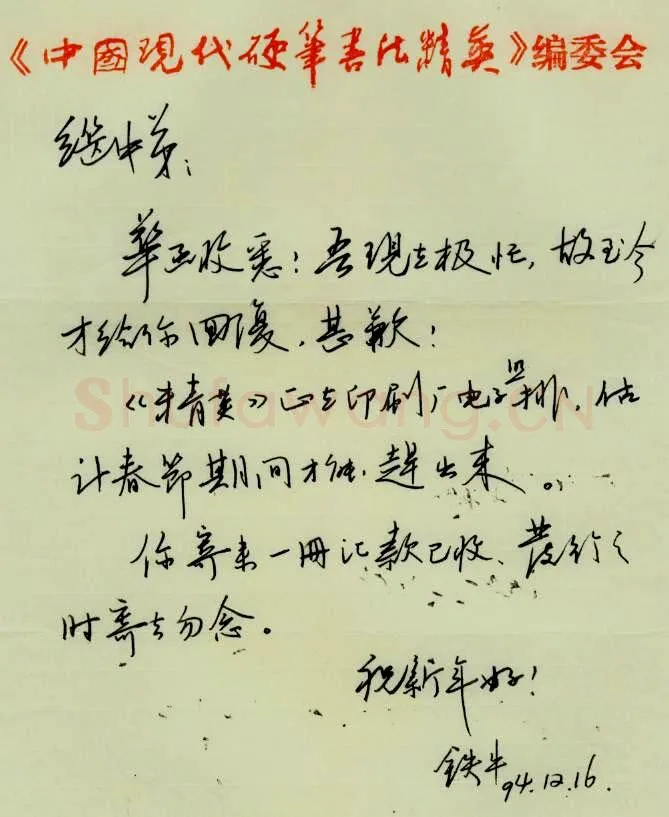 《中國現代硬筆書法精英》编委会
继中弟：
華函收悉！吾現在极忙，故至今
才给你回復，甚歉！
《精英》正在印刷厂电子照排，估
计春節期间才能趕出来。
你寄来一冊汇款已收、發行之
时寄去勿念。
祝新年好！
鉄牛94.12.16.
Shufawang.CN